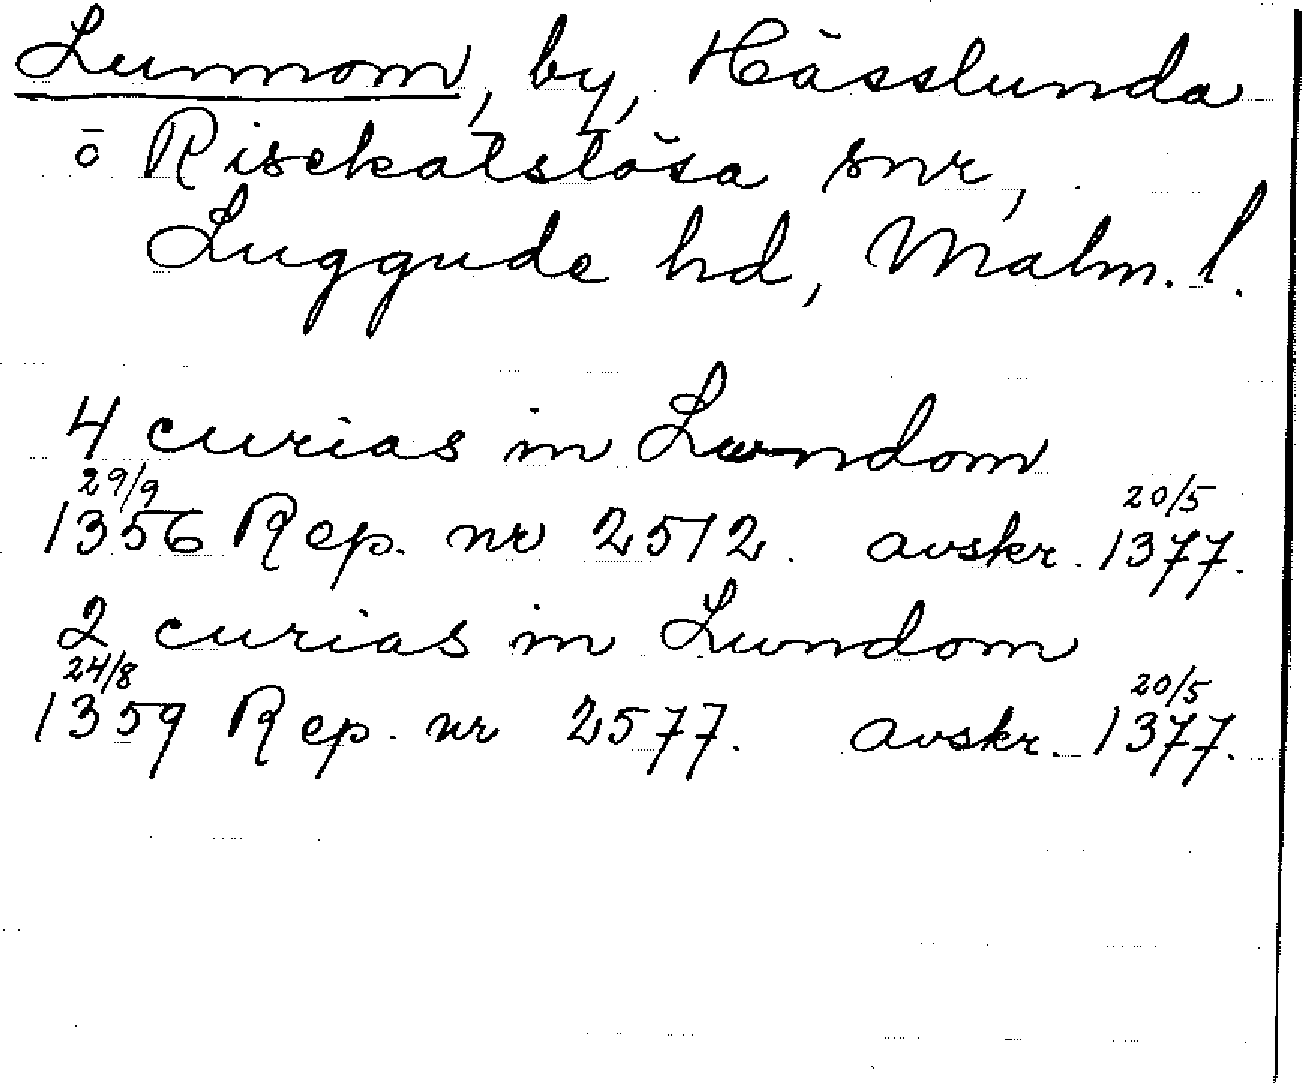 Lunnom, by, Hässlunda
ō Risekatslösa snr,
Luggude hd, Malm. l.
4 curias in Lundom
29/9
20/5
1356 Rep. nr 2512. avskr. 1377.
2 curias in Lundom
24/8
20/5
1359 Rep. nr 2577. avskr. 1377.